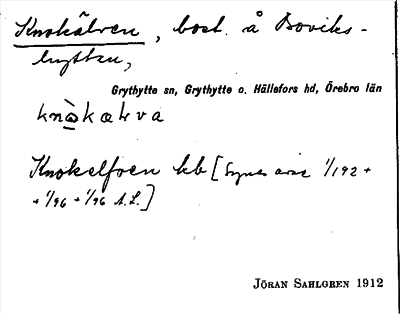 Knokälven, bost. å Boviks-
hyttan,
Grythytte sn, Grythytte o. Hällefors hd, Örebro län
Knokelfven kb [Synes avse 1/192 +
+ 1/96 + 1/96 A.L.]
JÖRAN SAHLGREN 1912